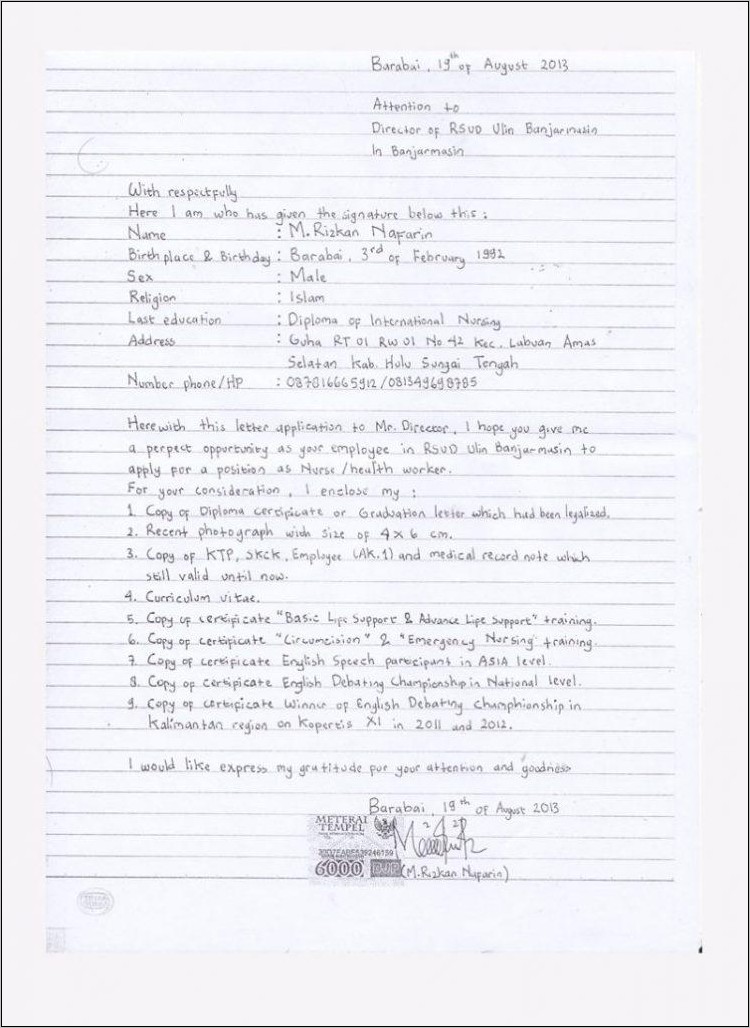 Barabai, 19th of August 2013
Attention to
Director of RSUD Ulin Banjarmasin
In Banjarmasin
With respectfully
Here I am who has given the signature below this :
Name : M. Rizkan Nafarin
Birth place & Birthday : Barabai, 3rd of February 1992
Sex : Male
Religion : Islam
Last education : Diploma of International Nursing
Address : Guha RT 01 RW 01 No 42 Kec. Labuan Amas
Selatan Kab. Hulu Sungai Tengah
Number phone/HP : 087816665912 / 081349698785
Herewith this letter application to Mr. Director, I hope you give me
a perpect opportunity as your employee in RSUD Ulin Banjarmasin to
apply for a position as Nurse / health worker.
For your consideration, I enclose my :
1. Copy of Diploma certificate or Graduation letter which had been legalized.
2. Recent photograph wide size of 4 x 6 cm.
3. Copy of KTP, SKCK, Employee (AK.1) and medical record note which
still valid until now.
4. Curriculum vitae.
5. Copy of certificate "Basic Life Support & Advance Life Support" training.
6. Copy of certificate "Circumcision" & "Emergency Nursing" training.
7. Copy of certificate English Speech participant in ASIA level.
8. Copy of certificate English Debating Championship in National level.
9. Copy of certificate Winner of English Debating Champhionship in
Kalimantan region on Kopertis XI in 2011 and 2012.
I would like express my gratitude for your attention and goodness
Barabai, 19th of August 2013
METERAI
TEMPEL
6000 DJP
(M. Rizkan Nafarin)